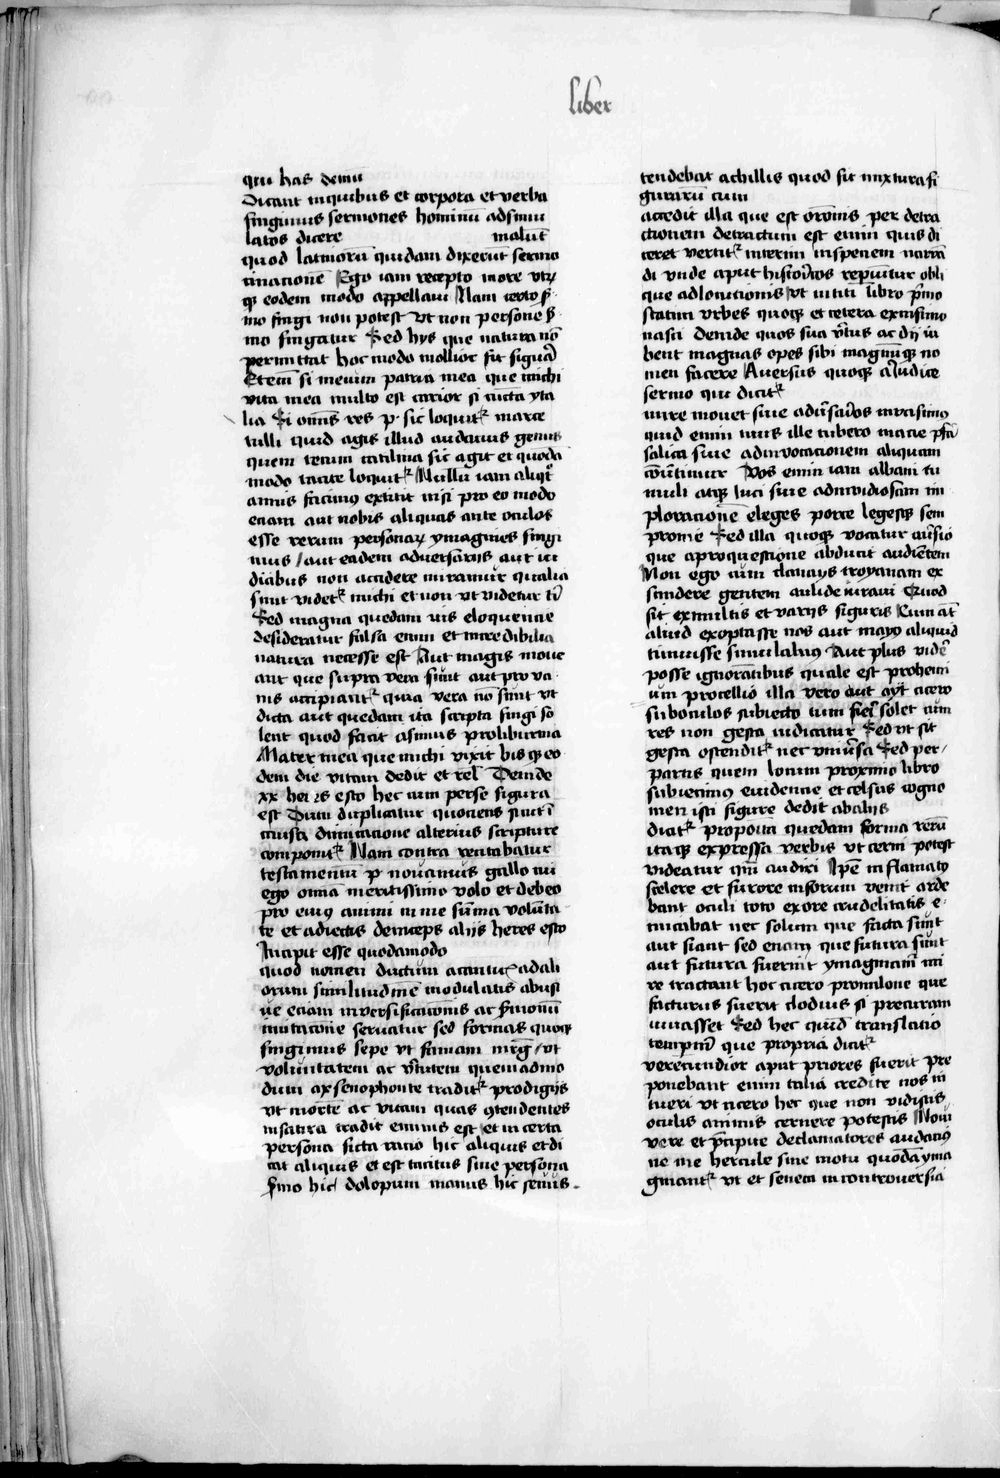 liber
qui has demū
Dicant inquibus et corpora et verba
fingimus sermones hominū adsimu
latos dicere malūt
quod latinorū quidam dixerūt sermo
cinacionē Ego iam recepto more vtꝝ
qꝫ eodem modo appellaui Nam certo s̄
mo fingi non potest vt non persone s̄
mo fingatur Sed hys que natura nō
permittat hoc modo mollior fit figura
Etem̄ si mecum patria mea que michi
vita mea multo est carior si cūcta yta
lia Si om̄is res p. sic loquit᷑ marce
tulli quid agis illud audauus genus
quem tecum catilina sic agit et quodā
modo tacite loquit᷑ Nullū iam aliqͦt
annis facinus extitit nisi pro eo modo
eciam aut nobis aliquas ante oculos
esse rerum personaꝝ ymagines fingi
mus / aut eadem aduersariis aut iu
dicibus non accidere miramur qualia
sunt videt᷑ michi et non vt videtur ti
Sed magna quedam uis eloquencie
desideratur falsa enim et incredibilia
natura necesse est Aut magis moue
ant que supra vera sunt aut pro va
nis accipiant᷑ quia vera nō sunt vt
dicta aut quedam ita scripta fingi so
lent quod facit asinius proliburnia
Mater mea que michi vixit bis qꝫ eo
dem die vitam dedit et rel Deinde
xx heres esto hec cum perse figura
est Dum duplicatur quociens sicut ī
causa Dimicacione alterius scripture
componit᷑ Nam contra recitabatur
testamentū p nouanius gallo cui
ego omnia meritissimo volo et debeo
pro eius animi in me sūma volūta
te et adiectis deinceps aliis heres esto
Incipit esse quodamodo
quod nomen ductum acantic᷑ adali
orum similitudinē modulatis abusi
ue eciam inversificacionis ac s̄monū
imitacōne seruatur sed formas quoqꝫ
fingimus sepe vt famam virḡ / vt
voluntatem ac v̄tutem quem admo
dum axsenophonte tradit᷑ prodigiis
vt mortē ac vitam quas 9tendentes
insatira tradit ennius est et incerta
persona ficta racio hic aliquis et di
cat aliquis et est tacitus sine persona
s̄mo hic dolopum manus hic seuus
tendebat achillis quod fit mixtura fi
gurarū cum
accedit illa que est orōinis per detra
ctionem detractum est enim quis di
ceret vertit᷑ interim inspeciem narrā
di vnde aput historicos reperiūtur obli
que adlocutionis vt ī titi libro p̄mo
statim vrbes quoqꝫ et cetera exinfimo
nasci deinde quos sua v̄tus ac dij iu
bent magnas opes sibi magnūqꝫ no
men facere Auersus quoqꝫ a iudice
sermo qui dicit᷑
mire mouet siue aduersarios inuasimus
quid enim tuus ille tubero in acie phar
salica siue adinvocacionem aliquam
cōuertimur Vos enim iam albani tu
muli atqꝫ luci siue adinvidiosam im
ploracionē eleges porce legesqꝫ sem
pronie Sed illa quoqꝫ vocatur auersio
que aproquestione abducit audiētem
Non ego cum danays troyanam ex
scindere gentem aulide iuraui Quod
fit exmultis et variis figuris Cum aūt
aliud exoptasse nos aut mayo aliquid
timuisse simulamus Aut plus vidē
posse ignorantibus quale est prohemi
um procellio illa vero aut ayt cicero
suboculos subiecto tum fieri solet cum
res non gesta iudicatur Sed vt sit
gesta ostendit᷑ nec vniuersa Sed per
partis quem locum proximo libro
subiecimus euidencie et celsus cogno
men isti figure dedit abaliis
dicit᷑ proposita quedam forma rerū
itaqꝫ expressa verbis vt cerni potest
videatur qm̄ audiri Ipse inflamato
scelere et furore inforum venit arde
bant oculi toto exore crudelitatis e
micabat nec solum que facta sunt
aut fiant sed eciam que futura sunt
aut futura fuerint ymaginam̄ mi
re tractant hoc cicero promilone que
facturus fuerit clodius si precuram
inuasset Sed hec quidē translacio
temporū que propria dicit᷑
verecundior aput priores fuerit pre
ponebant enim talia credite nos in
tueri vt cicero hec que non vidistis
oculis animis cernere potestis Noui
vero et p̄cipue declamatores audacius
ne me hercule sine motu quodā yma
ginant᷑ vt et seneca in controversia